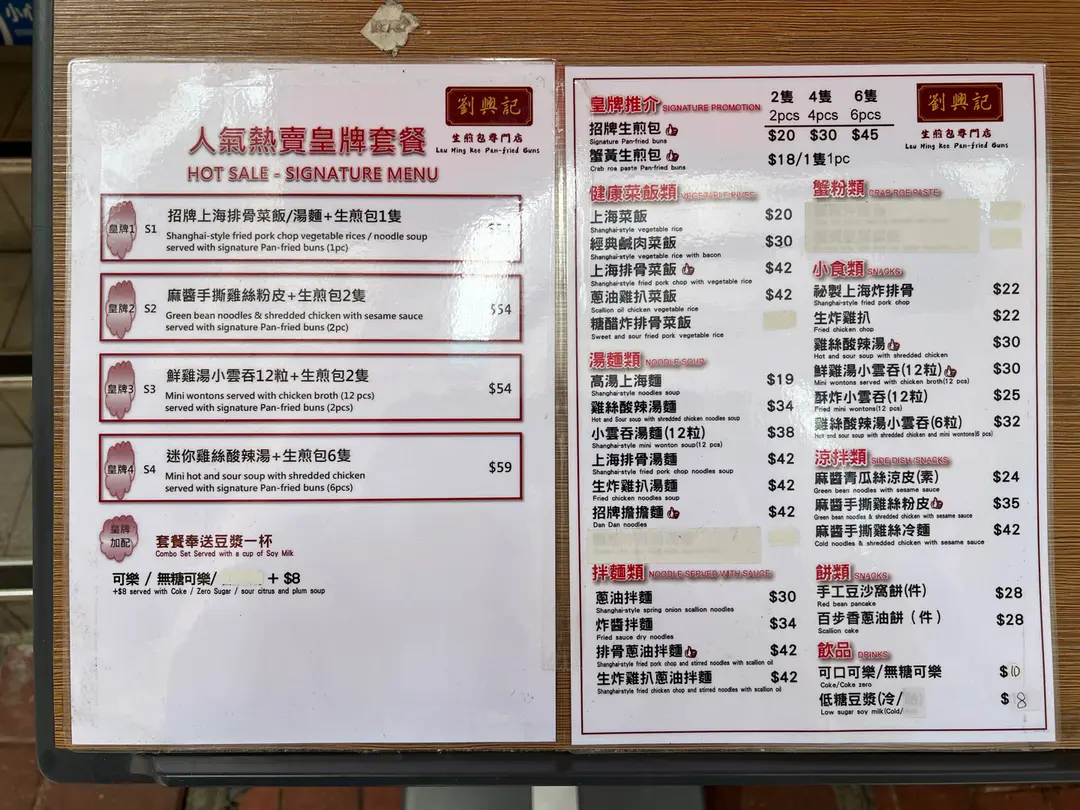 劉興記
生煎包專門店
Lau Hing Kee Pan-fried Buns
人氣熱賣皇牌套餐
HOT SALE - SIGNATURE MENU
皇牌1 S1 招牌上海排骨菜飯/湯麵+生煎包1隻
Shanghai-style fried pork chop vegetable rices / noodle soup
served with signature Pan-fried buns (1pc)
皇牌2 S2 麻醬手撕雞絲粉皮+生煎包2隻 $54
Green bean noodles & shredded chicken with sesame sauce
served with signature Pan-fried buns (2pc)
皇牌3 S3 鮮雞湯小雲吞12粒+生煎包2隻 $54
Mini wontons served with chicken broth (12 pcs)
served with signature Pan-fried buns (2pcs)
皇牌4 S4 迷你雞絲酸辣湯+生煎包6隻 $59
Mini hot and sour soup with shredded chicken
served with signature Pan-fried buns (6pcs)
皇牌
加配
套餐奉送豆漿一杯
Combo Set Served with a cup of Soy Milk
可樂 / 無糖可樂/ + $8
+$8 served with Coke / Zero Sugar / sour citrus and plum soup
劉興記
生煎包專門店
Lau Hing Kee Pan-fried Buns
皇牌推介 SIGNATURE PROMOTION 2隻 4隻 6隻
2pcs 4pcs 6pcs
招牌生煎包 $20 $30 $45
Signature Pan-fried buns
蟹黃生煎包 $18/1隻1pc
Crab roe paste Pan-fried buns
健康菜飯類 VEGETABLE RICES
上海菜飯 $20
Shanghai-style vegetable rice
經典鹹肉菜飯 $30
Shanghai-style vegetable rice with bacon
上海排骨菜飯 $42
Shanghai-style fried pork chop with vegetable rice
蔥油雞扒菜飯 $42
Scallion oil chicken vegetable rice
糖醋炸排骨菜飯
Sweet and sour fried pork vegetable rice
湯麵類 NOODLE SOUP
高湯上海麵 $19
Shanghai-style noodles soup
雞絲酸辣湯麵 $34
Hot and Sour soup with shredded chicken noodles soup
小雲吞湯麵(12粒) $38
Shanghai-style mini wonton soup(12 pcs)
上海排骨湯麵 $42
Shanghai-style fried pork chop noodles soup
生炸雞扒湯麵 $42
Fried chicken noodles soup
招牌擔擔麵 $42
Dan Dan noodles
拌麵類 NOODLE SERVED WITH SAUCE
蔥油拌麵 $30
Shanghai-style spring onion scallion noodles
炸醬拌麵 $34
Fried sauce dry noodles
排骨蔥油拌麵 $42
Shanghai-style fried pork chop and stirred noodles with scallion oil
生炸雞扒蔥油拌麵 $42
Shanghai-style fried chicken chop and stirred noodles with scallion oil
蟹粉類 CRAB ROE PASTE
小食類 SNACKS
祕製上海炸排骨 $22
Shanghai-style fried pork chop
生炸雞扒 $22
Fried chicken chop
雞絲酸辣湯 $30
Hot and sour soup with shredded chicken
鮮雞湯小雲吞(12粒) $30
Mini wontons served with chicken broth(12 pcs)
酥炸小雲吞(12粒) $25
Fried mini wontons(12 pcs)
雞絲酸辣湯小雲吞(6粒) $32
Hot and sour soup with shredded chicken and mini wontons(6 pcs)
涼拌類 SIDE DISH /SNACKS
麻醬青瓜絲涼皮(素) $24
Green bean noodles with sesame sauce
麻醬手撕雞絲粉皮 $35
Green bean noodles & shredded chicken with sesame sauce
麻醬手撕雞絲冷麵 $42
Cold noodles & shredded chicken with sesame sauce
餅類 SNACKS
手工豆沙窩餅(件) $28
Red bean pancake
百步香蔥油餅(件) $28
Scallion cake
飲品 DRINKS
可口可樂/無糖可樂 $10
Coke/Coke zero
低糖豆漿(冷/ $8
Low sugar soy milk(Cold/